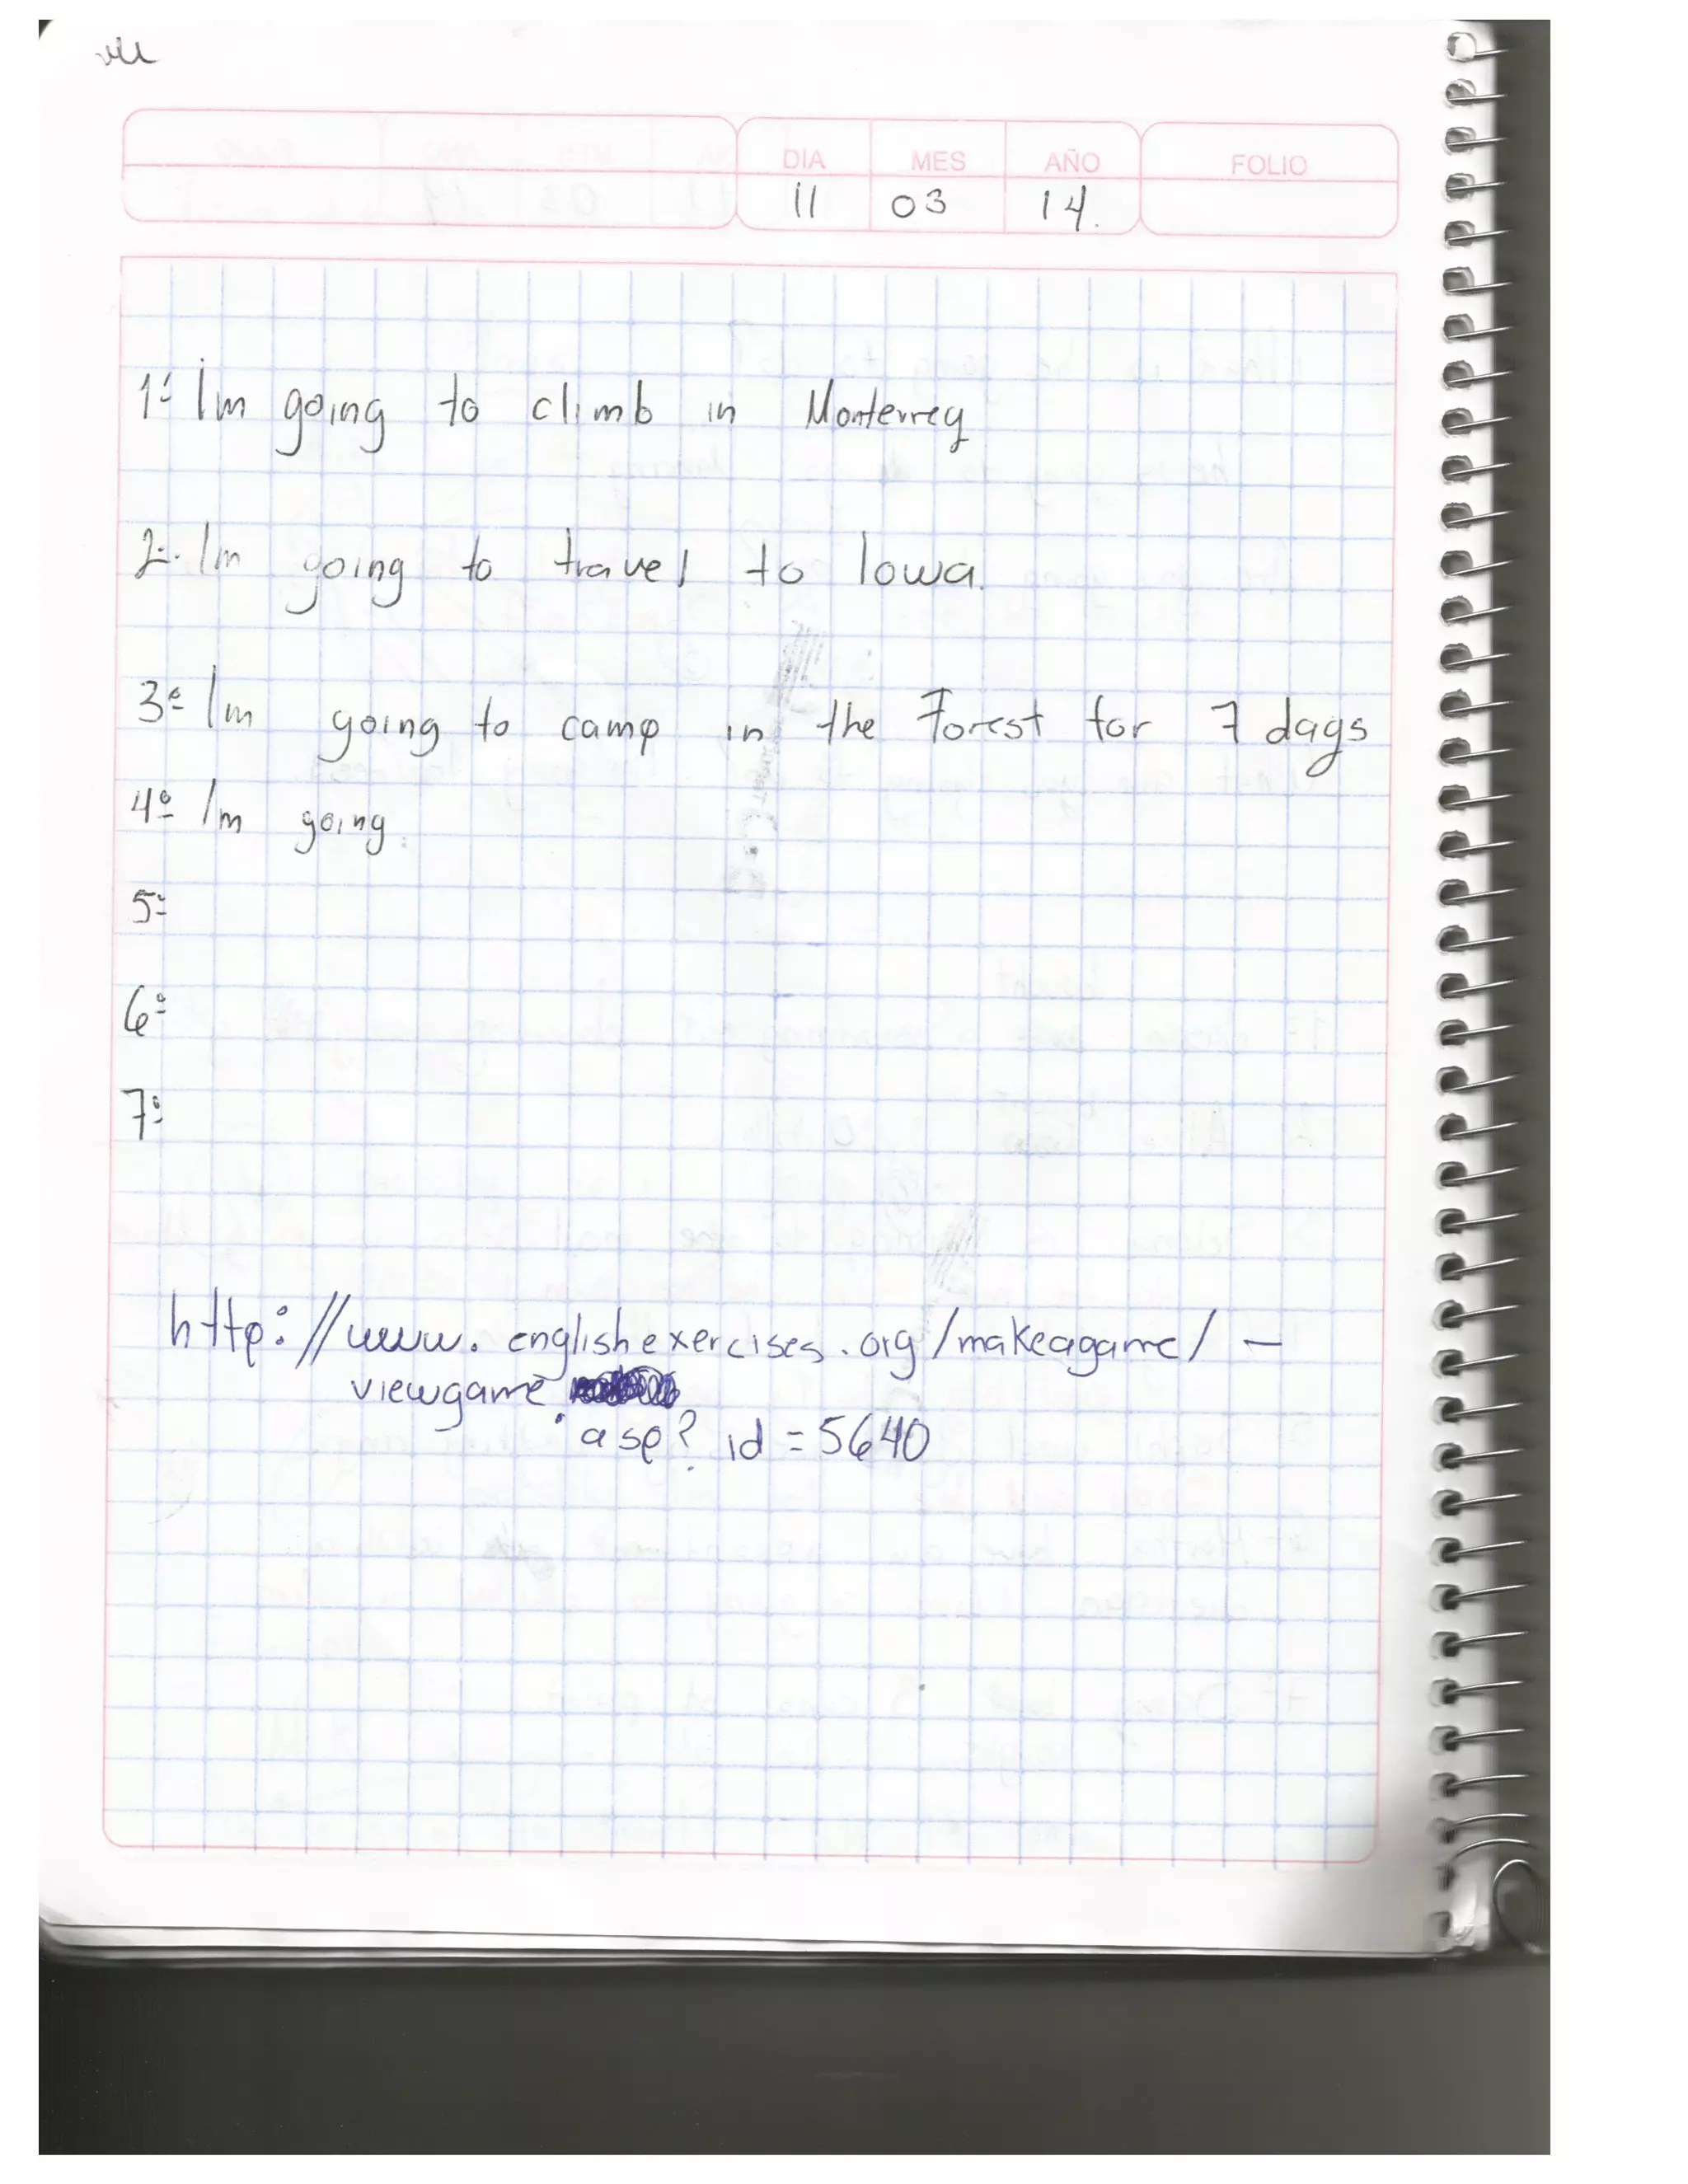 DIA MES AÑO FOLIO
11 03 14.
1º Im going to climb in Monterrey
2º. Im going to travel to Iowa.
3º Im going to camp in the Forest for 7 days
4º Im going.
5º
6º
7º
http://www.englishexercises.org/makeagame/-
viewgame
.asp? id=5640